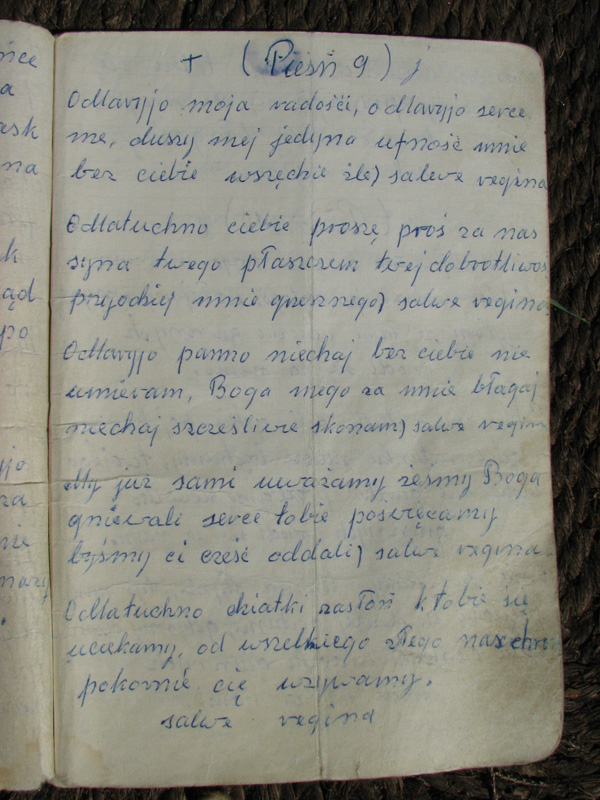 ńce
a
na
k
ąd
po
yjo
za
+ (Pieśń 9) j
O Maryjo moja radości, o Maryjo serce
me, duszy mej jedyna ufność mnie
bez ciebie wszędzie źle) salwe regina
O Matuchno ciebie proszę proś za nas
syna twego płaszczem twej dobrotliwoś
przyodziej mnie grzesznego) salwe regina
O Maryjo panno niechaj bez ciebie nie
umieram, Boga mego za mnie błagaj
niechaj szcześliwie skonam) salwe regin
My już sami uważamy żeśmy Boga
gniewali serce tobie poświęcamy
byśmy ci cześć oddali) salwe regina
O Matuchno dziatki zasłoń ktobie się
uciekamy, od wszelkiego złego nas chroń
pokornie cię wzywamy.
salwe regina